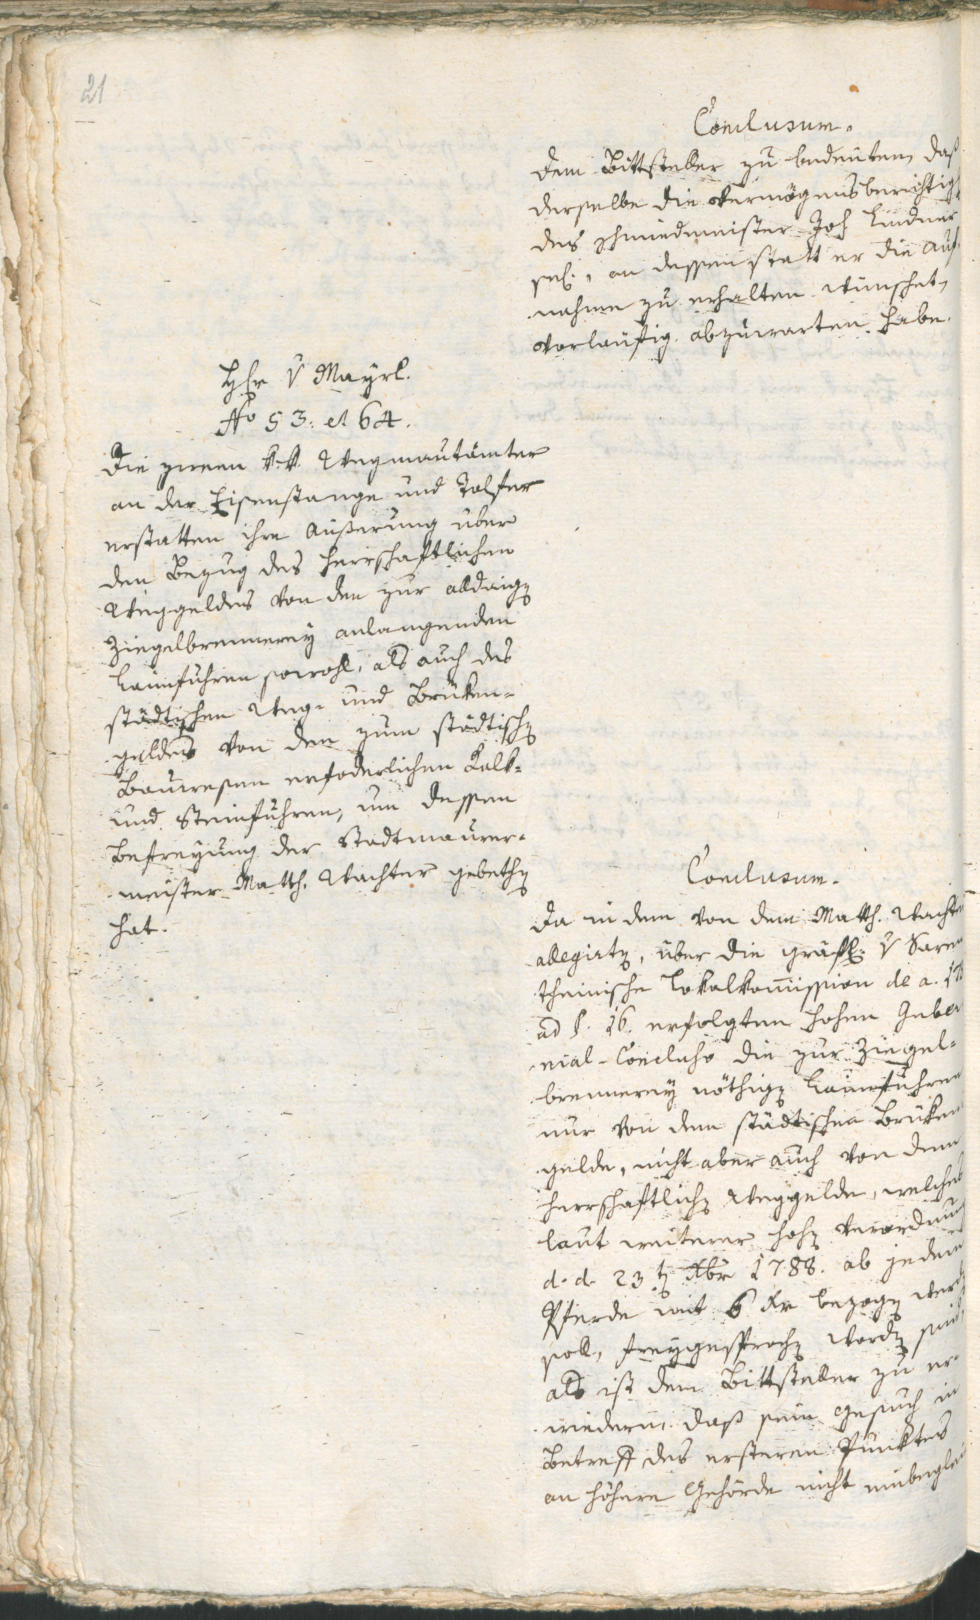 21
Conclusum.
Dem Bittsteller zu bedeuten, daß
derselbe die Vermögensberichtig
des Schmiedmeister Joh Lindner
sel., an dessen statt er die Auf-
nahme zu erhalten wünschet,
vorläufig abzuwarten habe.
Hr v Mayrl.
No 53. et 64.
Die zween k.k. Wegmautämter
an der Eisenstange und Talfer
erstatten ihre Äußerung über
den Bezug des herrschaftlichen
Weggeldes von den zur alldaig
Ziegelbrennerey anlangenden
Laimfuhren sowohl, als auch des
städtischen Weg- und Brüken-
geldes von den zum städtisch
Bauwesen erfoderlichen Kalk-
und Steinfuhren, um dessen
Befreyung der Stadtmaurer-
meister Matth. Wachter gebeth
hat.
Conclusum.
Da in dem von dem Matth. Wachter
allegirt, über die gräfl. v Saren
theinische Lokalkommission de a. 17
ad §. 16. erfolgten hohen Guber
nial-Concluso die zur Ziegel-
brennerey nöthig Laimfuhren
nur von dem städtischen Brüken
gelde, nicht aber auch von dem
herrschaftlich Weggelde, welches
laut weiterer hoh Verordnung
d. d. 23t Xbr 1788. ab jedem
Pferde mit 6 kr bezog werd
soll, freygesproch word sind,
als ist dem Bittsteller zu er-
wiedern, daß sein Gesuch in
Betreff des ersteren Punktes
an höhere Behörde nicht einbeglei